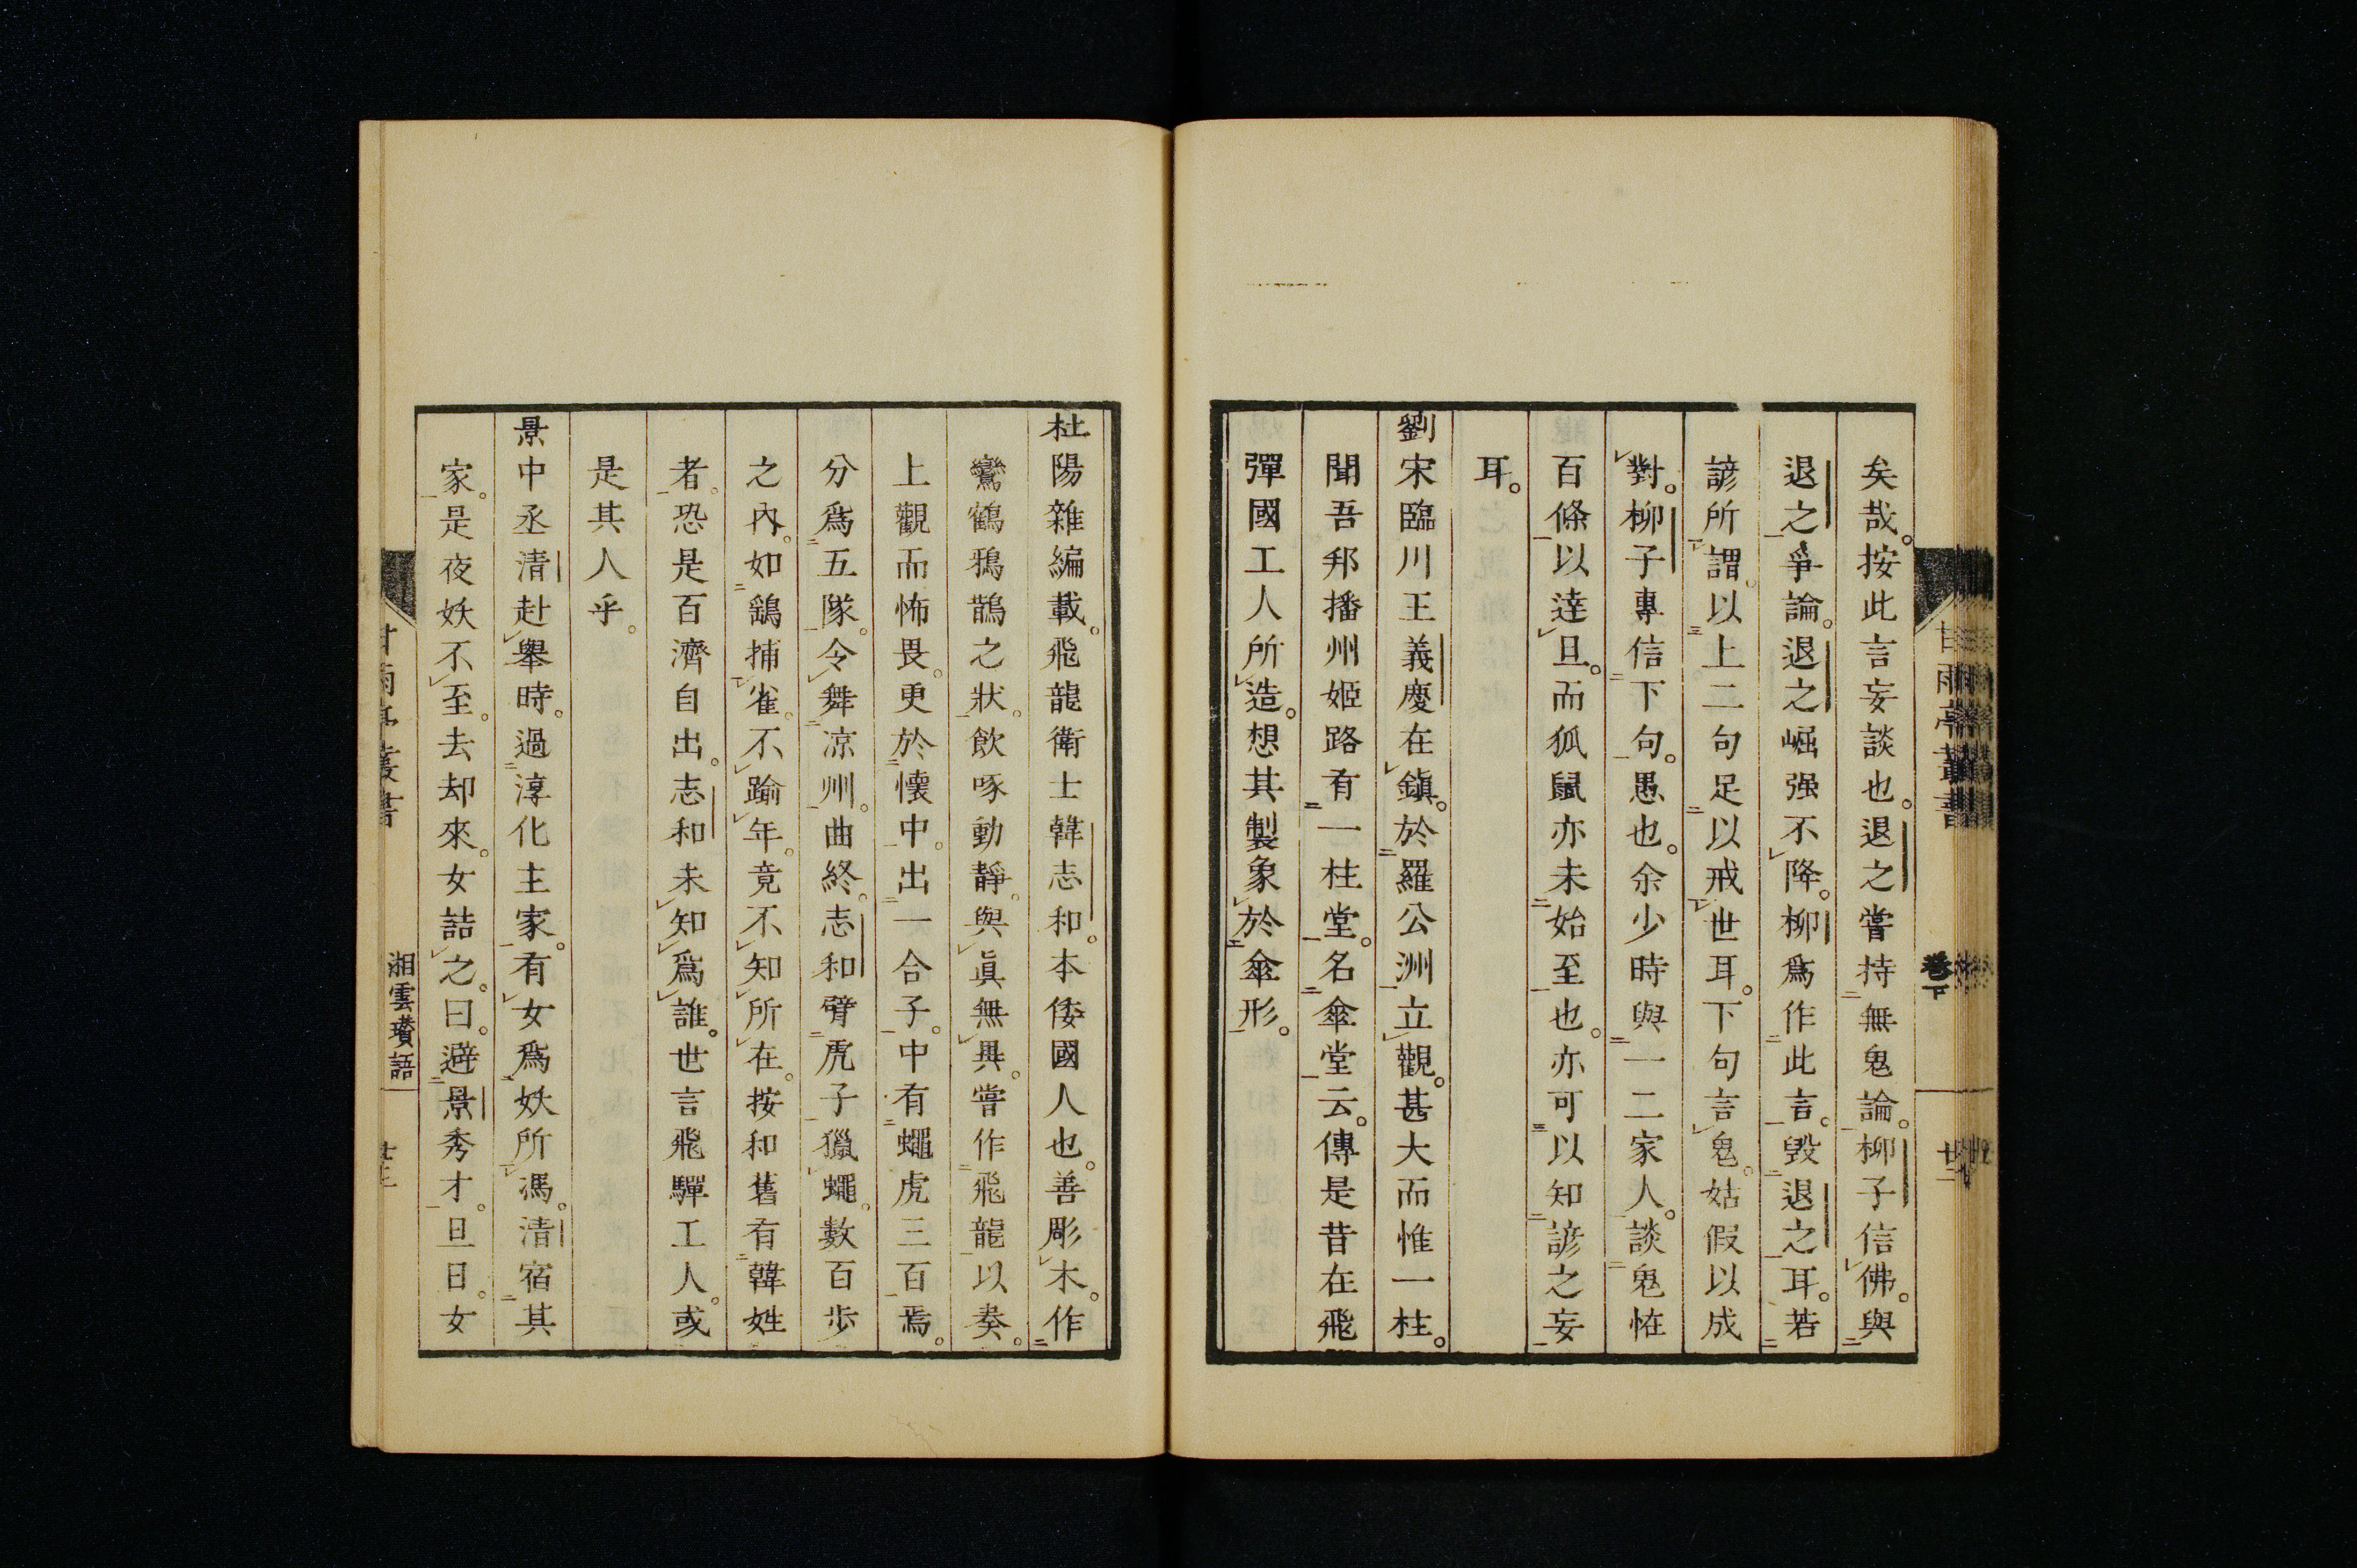 矣哉。按此言妄談也。退之嘗持無鬼論。柳子信佛。與
退之爭論。退之崛强不降。柳爲作此言。毀退之耳。若
諺所謂。以上二句足以戒世耳。下句言鬼。姑假以成
對。柳子專信下句。愚也。余少時與一二家人。談鬼恠
百條以達旦。而狐鼠亦未始至也。亦可以知諺之妄
耳。
劉宋臨川王義慶在鎭。於羅公洲立觀。甚大而惟一柱。
聞吾邦播州姬路有一柱堂。名傘堂云。傳是昔在飛
彈國工人所造。想其製象於傘形。
杜陽雜編載。飛龍衛士韓志和。本倭國人也。善彫木。作
鸞鶴鴉鵲之狀。飲啄動靜。與眞無異。嘗作飛龍以奏。
上觀而怖畏。更於懷中。出一合子。中有蠅虎三百焉。
分爲五隊。令舞凉州。曲終。志和臂虎子獵蠅。數百步
之內。如鷂捕雀。不踰年。竟不知所在。按和舊有韓姓
者。恐是百濟自出。志和未知爲誰。世言飛驒工人。或
是其人乎。
景中丞清赴舉時。過淳化主家。有女爲妖所馮。清宿其
家。是夜妖不至。去却來。女詰之。曰。避景秀才。旦日。女
甘雨亭叢書
卷下
廿二
湘雲瓚語